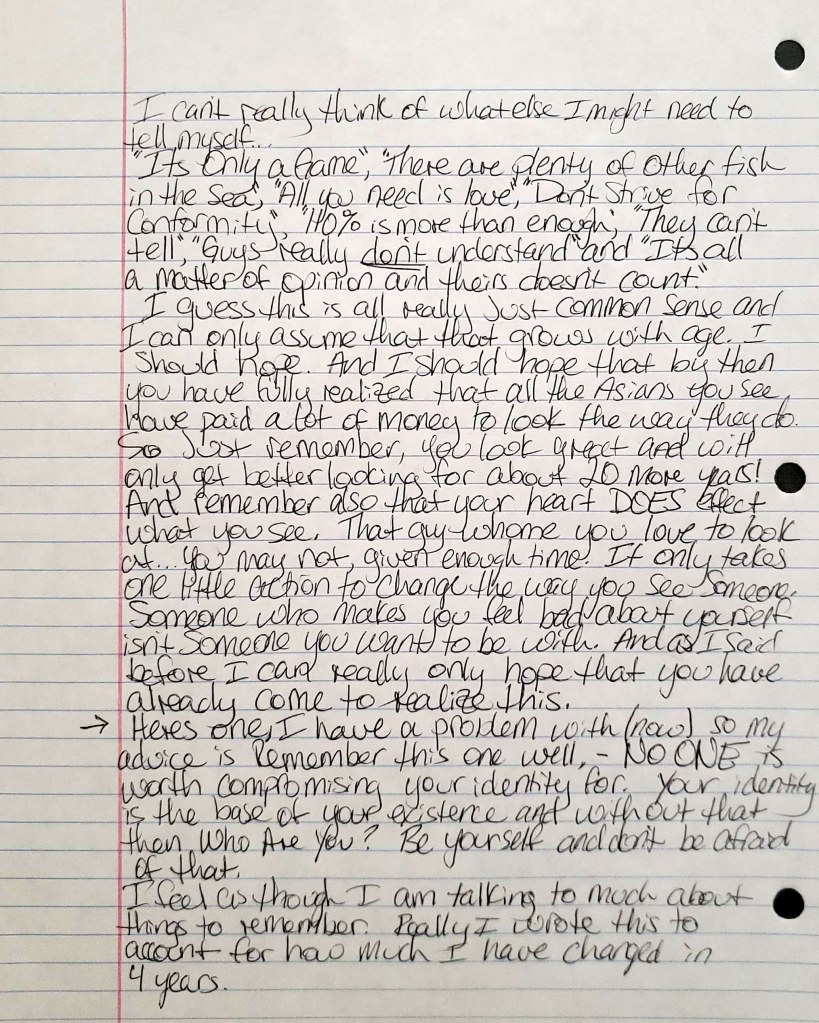 I can't really think of what else I might need to
tell myself...
"Its Only a Game", "There are plenty of other fish
in the Sea", "All you need is love", "Don't Strive for
Conformity", "110% is more than enough", "They can't
tell", "Guys really don't understand" and "Its all
a matter of opinion and theirs doesn't count."
I guess this is all really Just common sense and
I can only assume that that grows with age. I
Should hope. And I should hope that by then
you have fully realized that all the Asians you see,
Have paid a lot of money to look the way they do.
So Just remember, you look great and will
only get better looking for about 20 more years!
And remember also that your heart DOES effect
what you see. That guy whome you love to look
at... you may not, given enough time. It only takes
one little action to change the way you see Someone.
Someone who makes you feel bad about yourself
isn't Someone you want to be with. And as I Said
before I can really only hope that you have
already come to realize this.
→ Heres one, I have a problem with (now) so my
advice is Remember this one well, - NO ONE is
worth compromising your identity for. Your identity
is the base of your existence and without that
then, Who Are You? Be yourself and don't be afraid
of that.
I feel as though I am talking to much about
things to remember. Really I wrote this to
account for how much I have changed in
4 years.